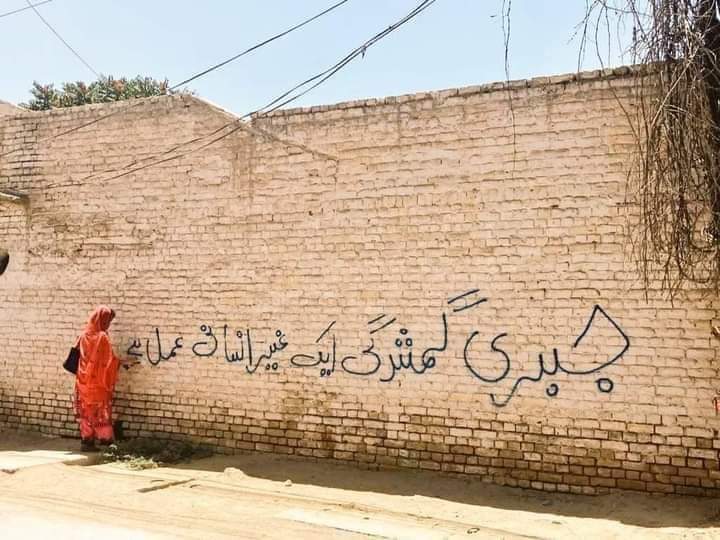 جبری گمشدگی ایک غیر انسانی عمل ہے